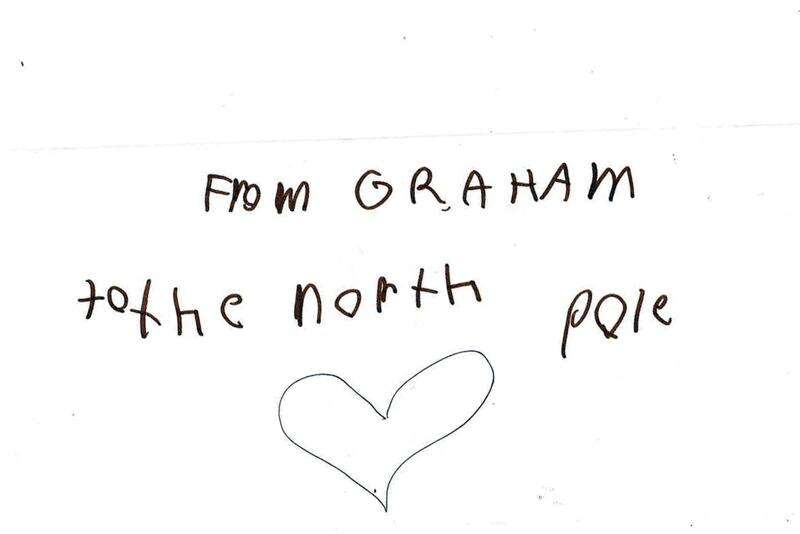 From GRAHAM
to the north pole